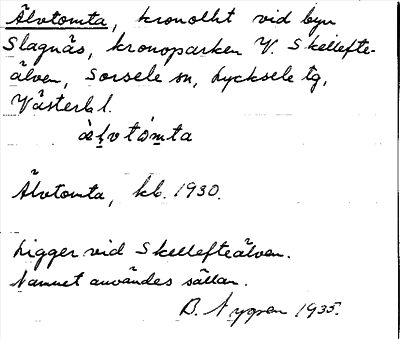 Älvtomta, kronolht vid byn
Slagnäs, kronoparken V. Skellefte-
älven, Sorsele sn, Lycksele tg,
Västerb l.
älvtòmta
Älvtomta, kb. 1930.
Ligger vid Skellefteälven.
Namnet användes sällan.
B. Nygren 1935.